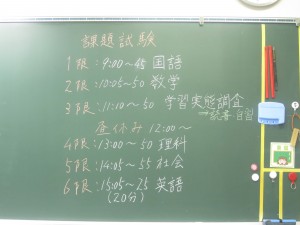 課題試験
1限:9:00~45 国語
2限:10:05~50 数学
3限:11:10~50 学習実態調査
→読書 自習
昼休み 12:00~
4限:13:00~50 理科
5限:14:05~55 社会
6限:15:05~25 英語
(20分)